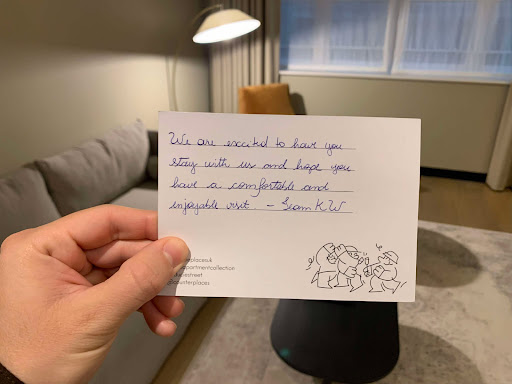 We are excited to have you
stay with us and hope you
have a comfortable and
enjoyable visit. - Team KW
placesuk
partmentcollection
street
unterplaces